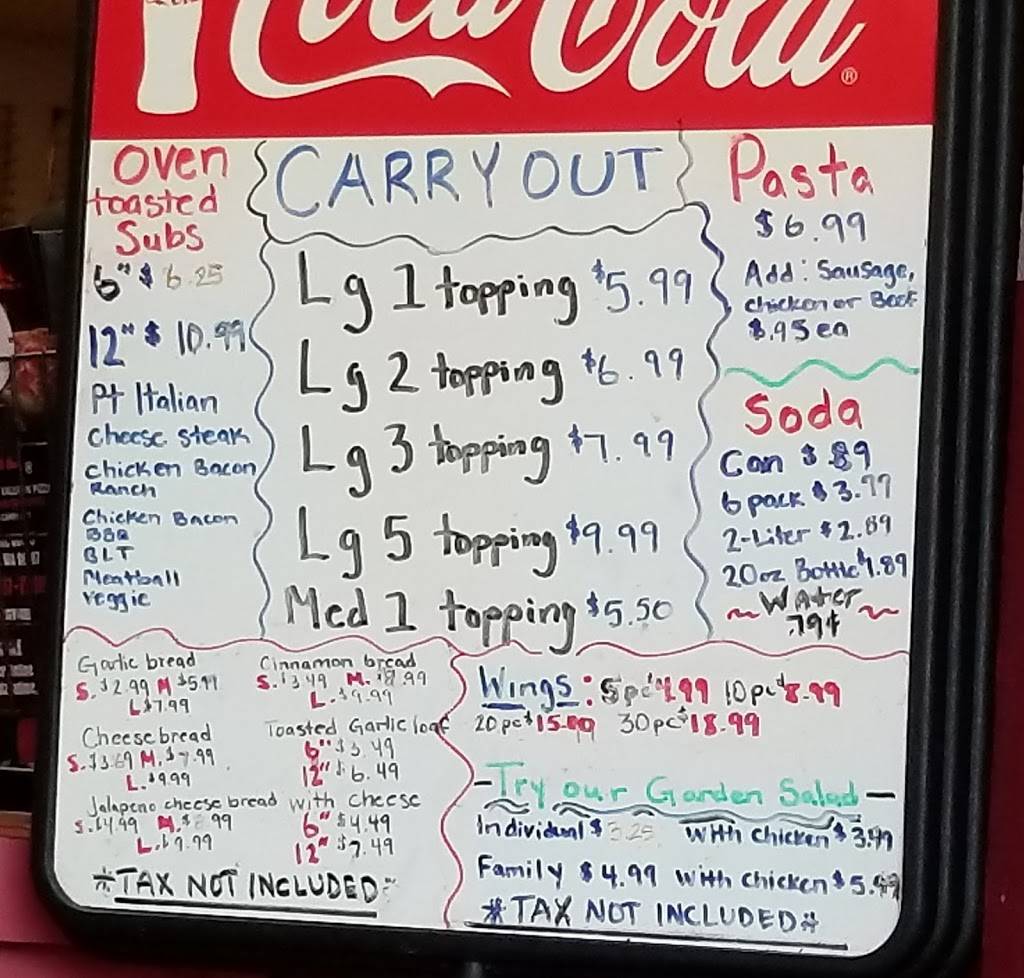 Coca-Cola®
CARRY OUT
Oven
toasted
Subs
6" $ 6.25
12" $ 10.99
Pt Italian
Cheese steak
Chicken Bacon
Ranch
Chicken Bacon
BBQ
BLT
Meatball
Veggie
Lg 1 topping $5.99
Lg 2 topping $6.99
Lg 3 topping $7.99
Lg 5 topping $9.99
Med 1 topping $5.50
Pasta
$6.99
Add: Sausage,
chicken or Beef
$.95 ea
Soda
Can $.89
6 pack $3.99
2-Liter $2.89
20oz Bottle $1.89
~ Water ~
.79¢
Garlic bread
S. $2.99 M $5.99
L $7.99
Cheese bread
S. $3.69 M. $7.99
L. $9.99
Jalapeno cheese bread
S. $4.99 M. $ .99
L. $9.99
Cinnamon bread
S. $3.49 M. $8.99
L. $9.99
Toasted Garlic loaf
6" $3.49
12" $6.49
with cheese
6" $4.49
12" $7.49
*TAX NOT INCLUDED*
Wings: 5pc $4.99 10pc $8.99
20pc $15.99 30pc $18.99
-Try our Garden Salad-
Individual $3.25 With chicken $3.99
Family $4.99 With chicken $5.99
*TAX NOT INCLUDED*